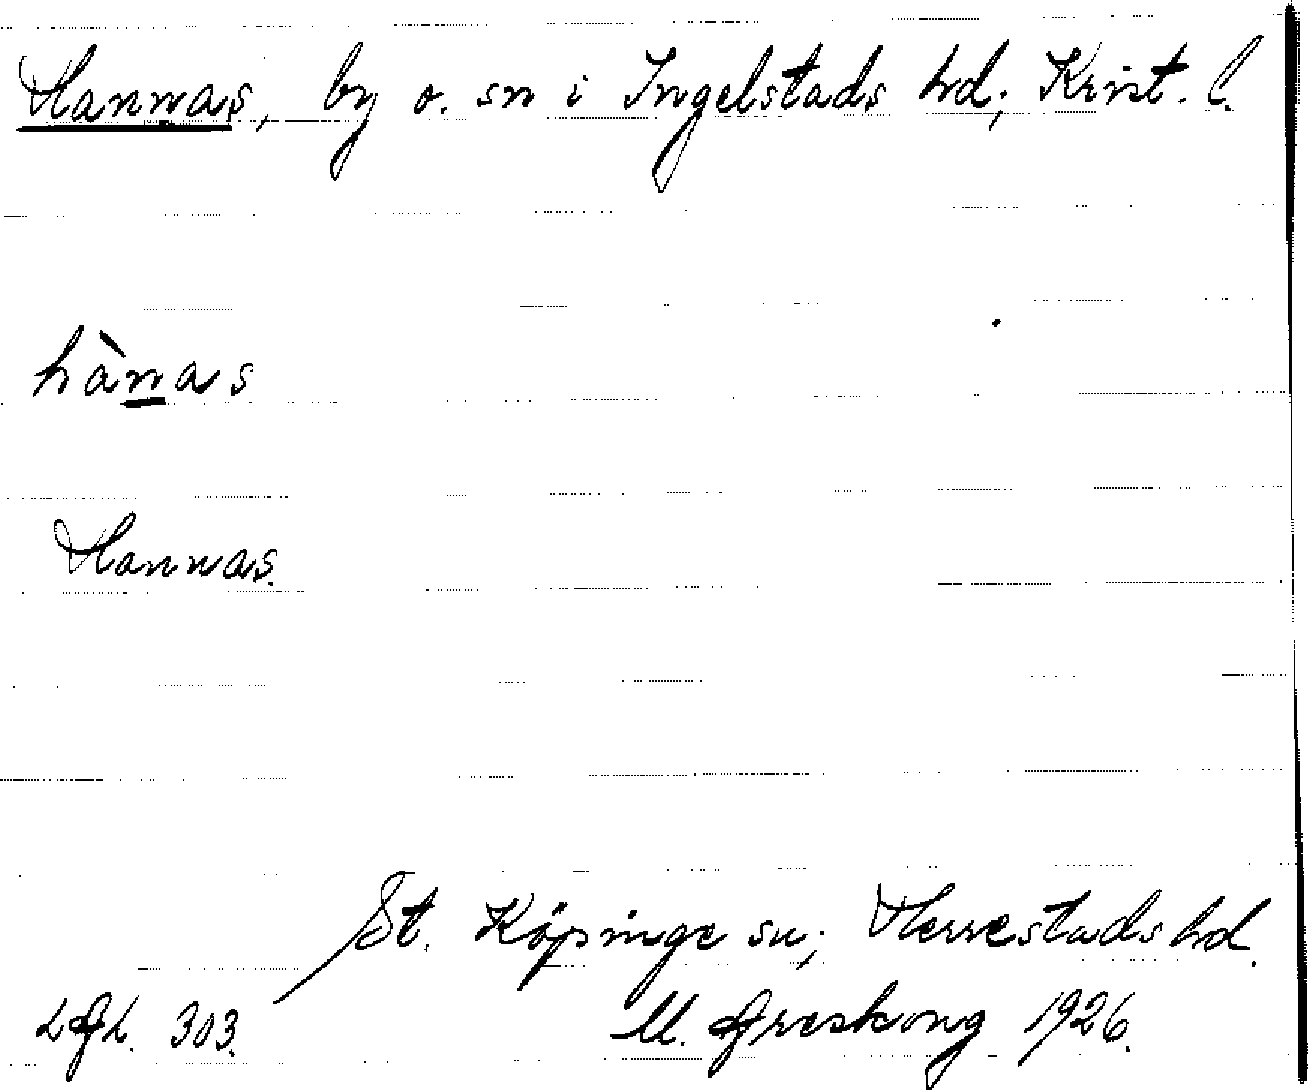 Hannas, by o. sn i Ingelstads hd; Krist. l.
hànas
Hannas.
St. Köpinge sn; Herrestads hd.
303.
1926.